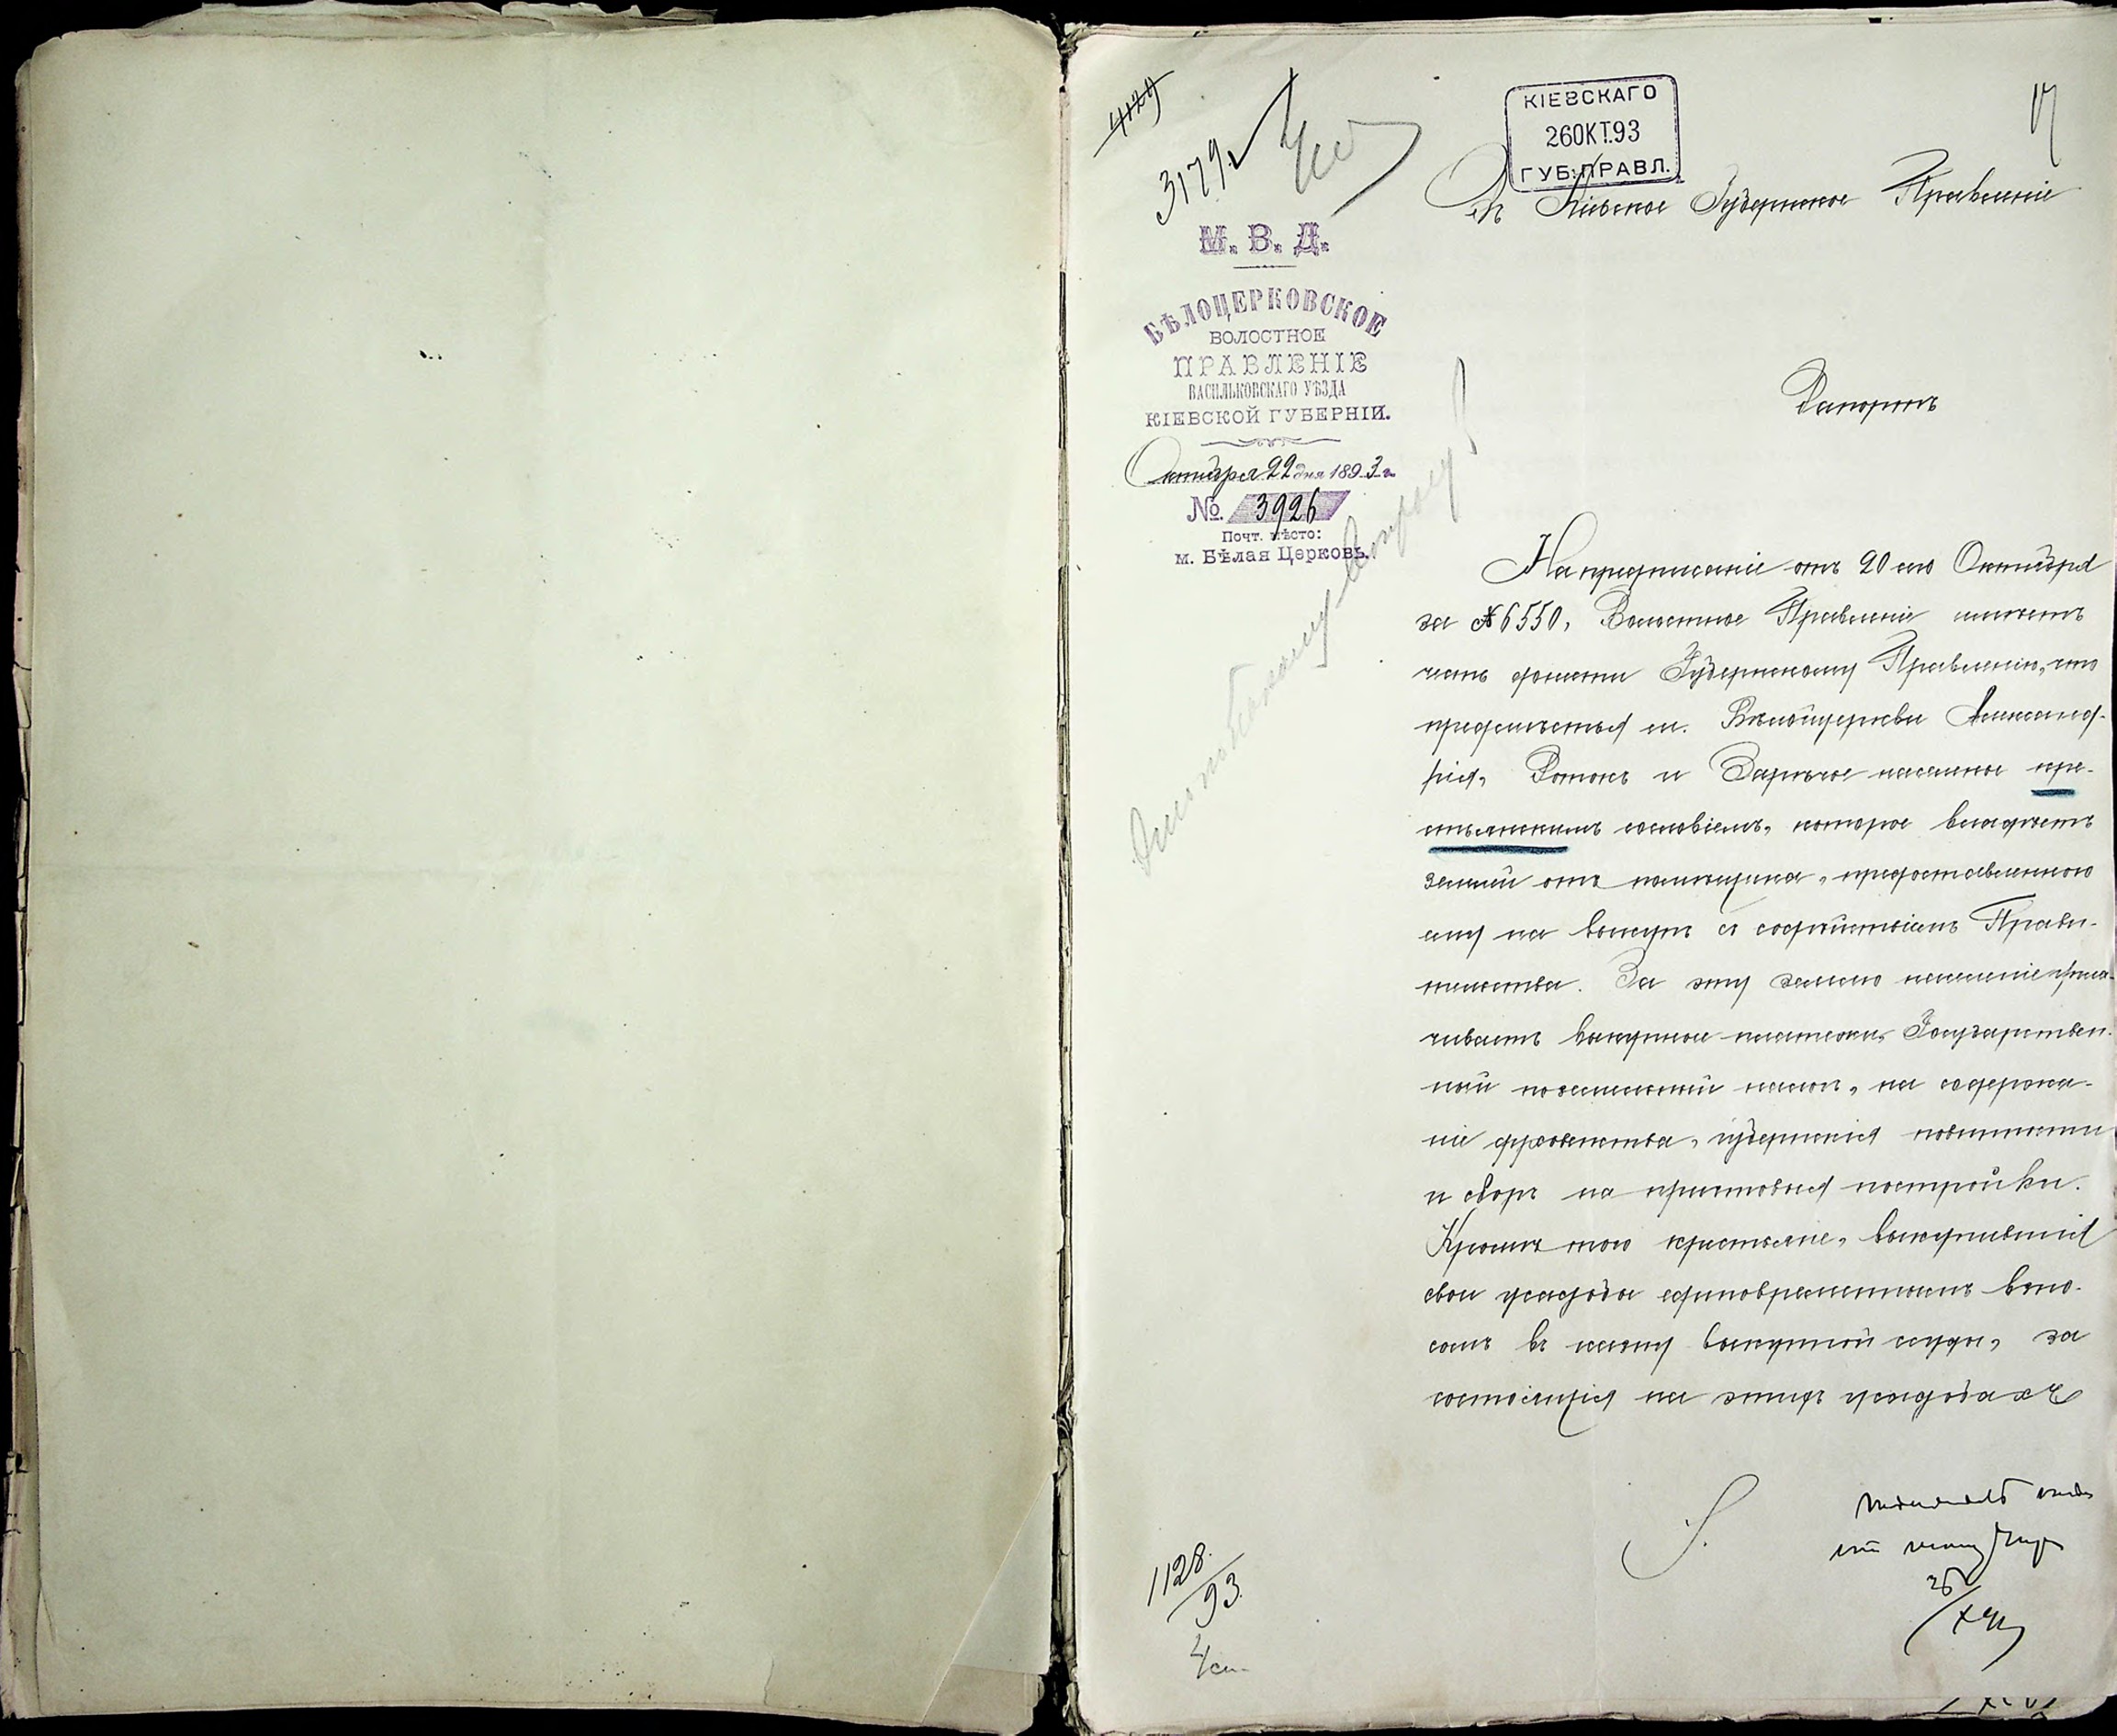 4129
3179
17
КІЕВСКАГО
26ОКТ.93
ГУБ:ПРАВЛ.
Въ Кіевское Губернское Правленіе
М. В. Д.
БѢЛОЦЕРКОВСКОЕ
ВОЛОСТНОЕ
ПРАВЛЕНІЕ
ВАСИЛЬКОВСКАГО УѢЗДА
КІЕВСКОЙ ГУБЕРНІИ.
Октября 22 дня 1893 г.
№ 3926
Почт. мѣсто:
м. Бѣлая Церковь.
Рапортъ
На предписаніе отъ 20 сего Октября
за № 6550, Волостное Правленіе имѣетъ
честь донести Губернскому Правленію, что
предмѣстья м. Бѣлойцеркви Александ-
рія, Ротокъ и Зарѣчье населены кре-
стьянскимъ сословіемъ, которое владѣетъ
землей отъ помѣщика, предоставленною
ему на выкупъ съ содѣйствіемъ Прави-
тельства. За эту землю населеніе упла-
чиваетъ выкупные платежи, Государствен-
ный поземельный налогъ, на содержа-
ніе духовенства, губернскія повинности
и сборъ на причтовыя постройки.
Кромѣ того крестьяне, выкупившіе
свои усадьбы единовременнымъ взно-
сомъ въ кассу выкупной ссуды, за
состоящія на этихъ усадьбахъ
1128
93
4 ст.
26
X 93